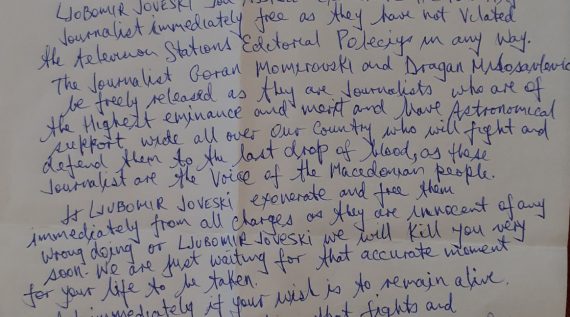 LJUBOMIR JOVESKI you
Journalist immediately free as they have not Vilated
the Television Stations Editorial Poleciys in any way.
The Journalist Goran Momirovski and Dragan Milosavlevic
be freely released as they are Journalists who are of
the Highest eminance and merit and have Astronomical
support wide all over Our Country who will fight and
defend them to the last drop of blood, as these
Journalist are the Voice of the Macedonian people.
LJUBOMIR JOVESKI exonerate and free them
immediately from all charges as they are innocent of any
wrong doing or LJUBOMIR JOVESKI we will kill you very
soon. We are just waiting for that accurate moment
for your life to be taken.
immediately if your wish is to remain alive.
that fights and